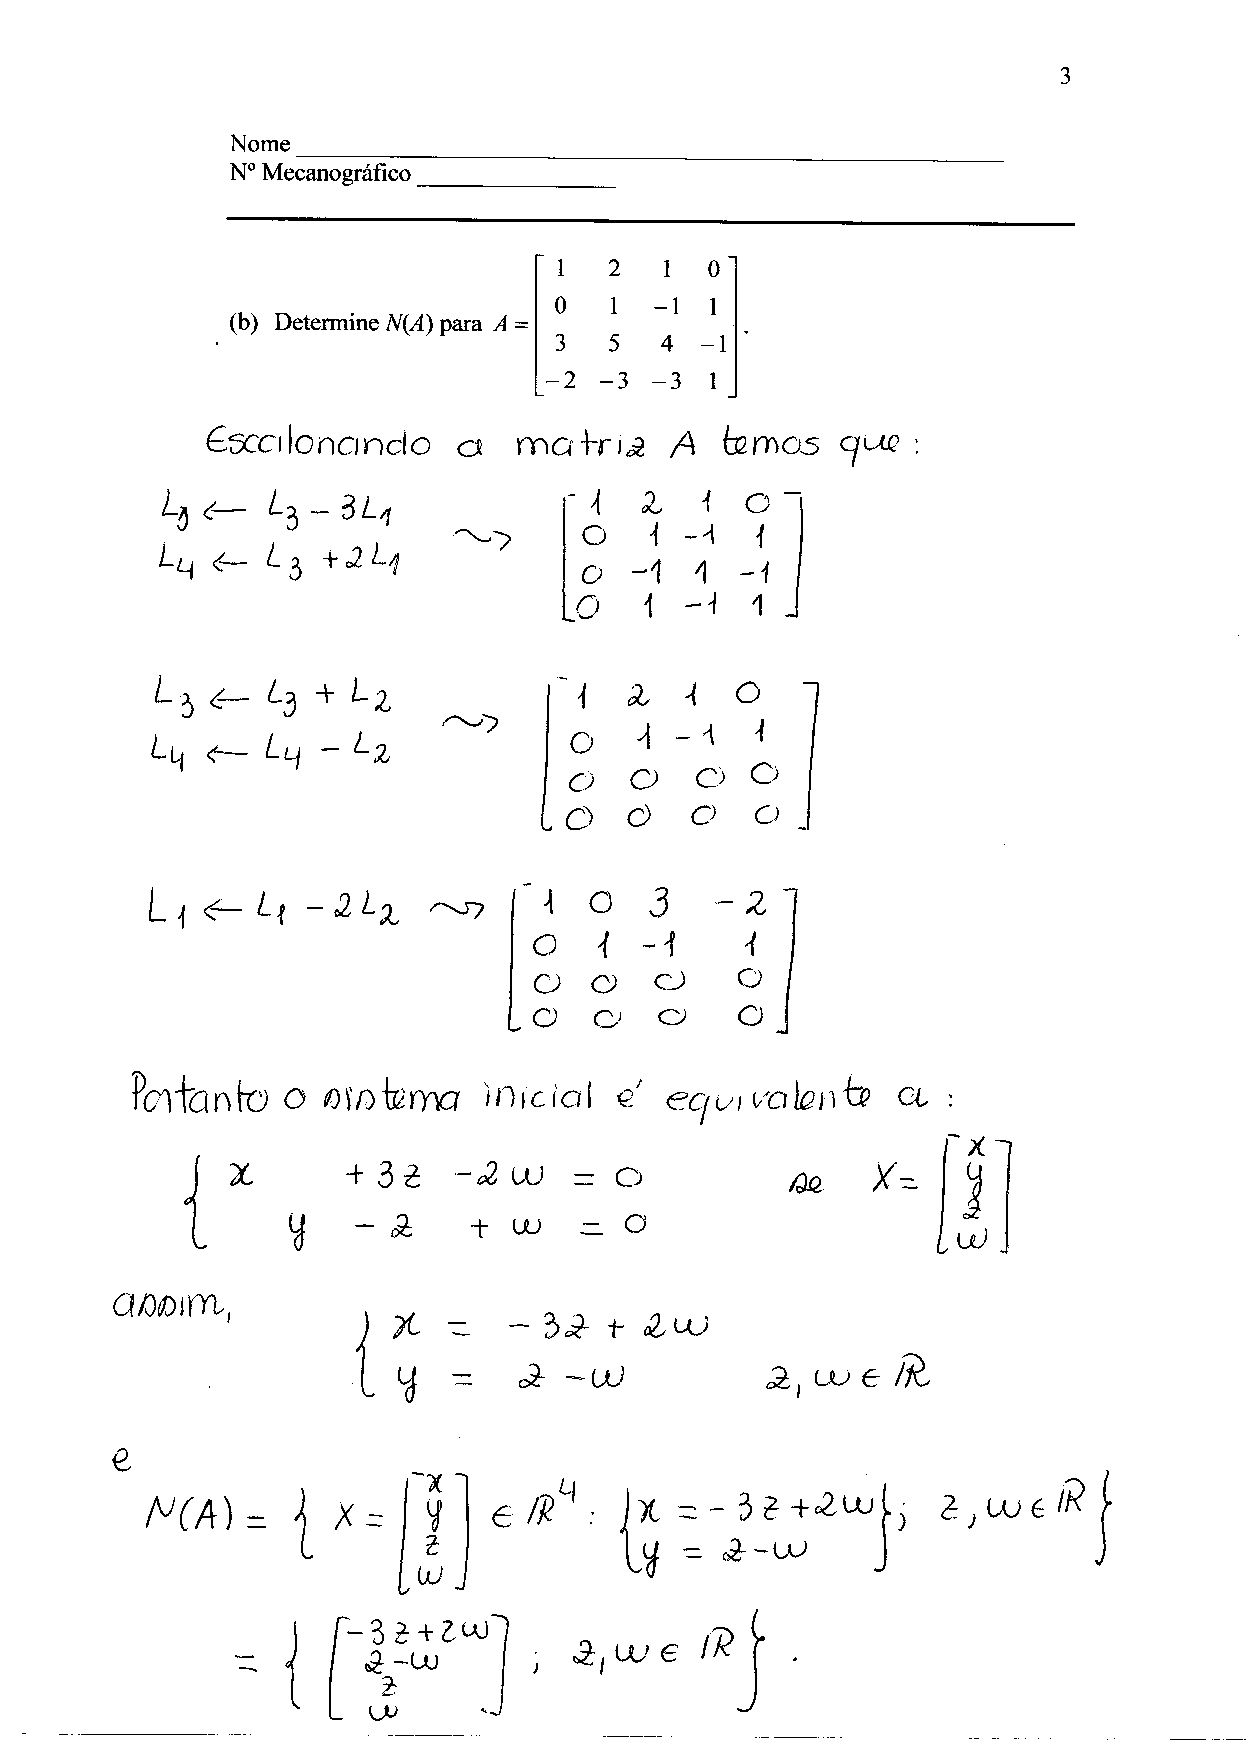 3
Nome
Nº Mecanográfico
(b) Determine N(A) para A = [ 1 2 1 0
0 1 -1 1
3 5 4 -1
-2 -3 -3 1 ].
Escalonando a matriz A temos que :
L3 ← L3 - 3L1
L4 ← L3 + 2L1
⤳ [ 1 2 1 0
0 1 -1 1
0 -1 1 -1
0 1 -1 1 ]
L3 ← L3 + L2
L4 ← L4 - L2
⤳ [ 1 2 1 0
0 1 -1 1
0 0 0 0
0 0 0 0 ]
L1 ← L1 - 2L2 ⤳ [ 1 0 3 -2
0 1 -1 1
0 0 0 0
0 0 0 0 ]
Portanto o sistema inicial é equivalente a :
{ x + 3z - 2w = 0
y - z + w = 0
se X = [ x
y
z
w ]
assim,
{ x = - 3z + 2w
y = z - w z, w ∈ ℝ
e
N(A) = { X = [ x
y
z
w ] ∈ ℝ⁴ : { x = - 3z + 2w
y = z - w } ; z, w ∈ ℝ }
= { [ -3z + 2w
z - w
z
w ] ; z, w ∈ ℝ } .